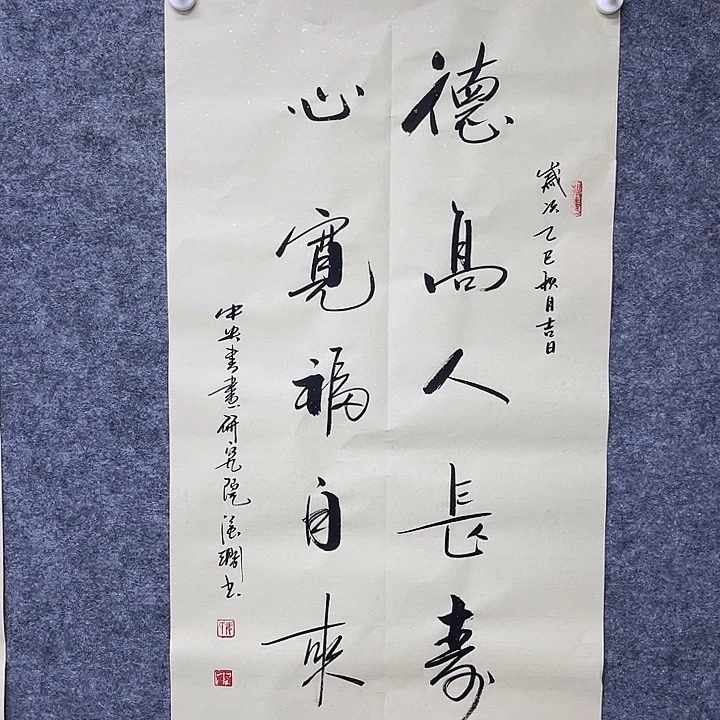 歲次乙巳秋月吉日
德高人長壽
心寬福自來
中央書畫研究院
书